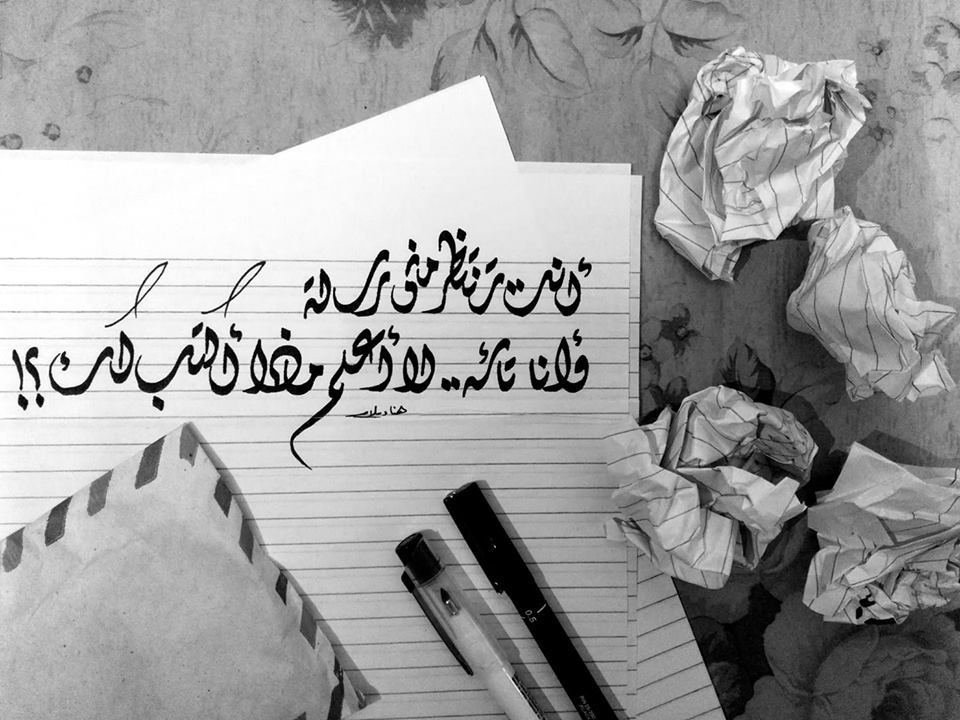 أنت تنتظر مني رسالة
وأنا تائه.. لا أعلم ماذا أكتب لك؟!
0.5